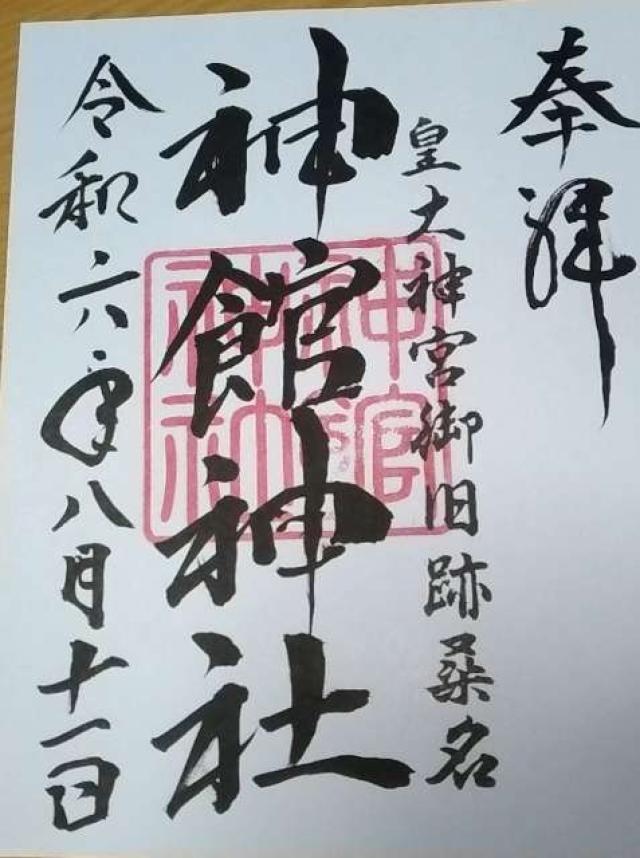 奉拝
皇大神宮御旧跡桑名
神館神社
令和六年八月十一日